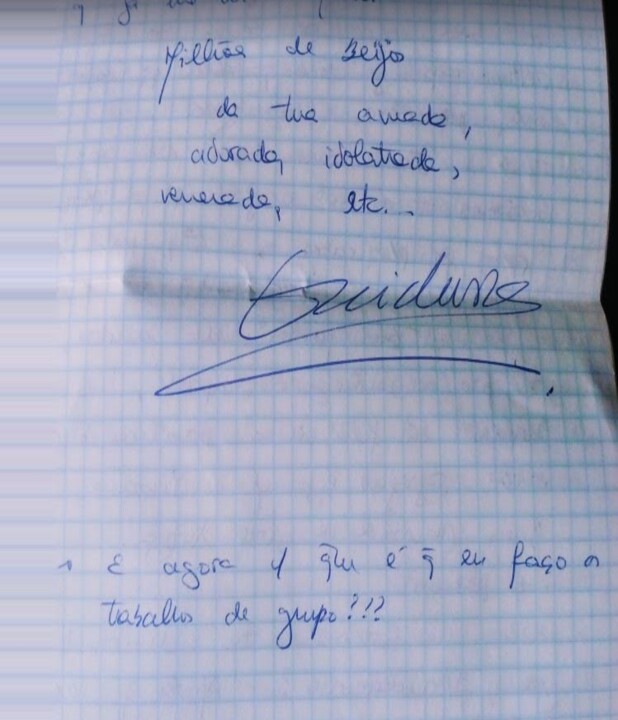 Milhões de beijo
da tua amada,
adorada, idolatrada,
venerada, etc...
E agora c/ qu é q eu faço o
trabalho de grupo?!?